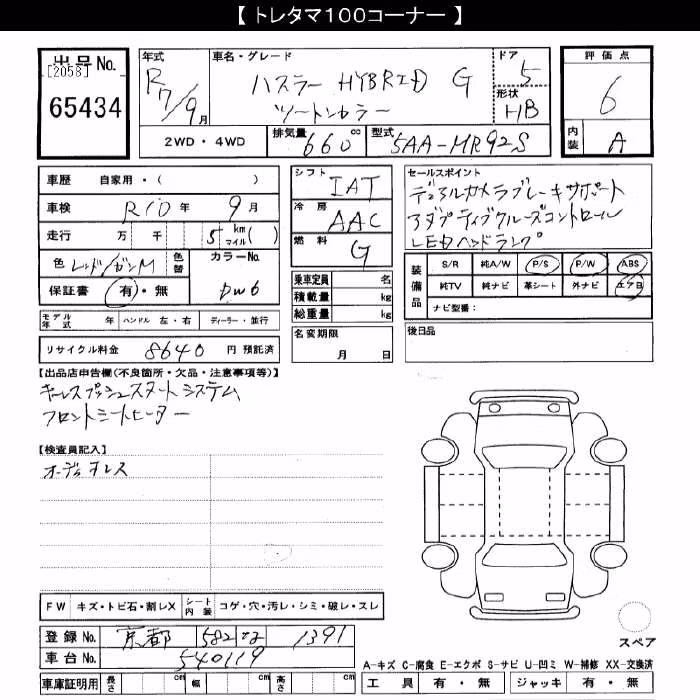 【トレタマ100コーナー】
出品No.
[2058]
65434
年式
R7/9月
車名・グレード
ハスラー HYBRID G
ツートンカラー
ドア
5
形状
HB
評価点
6
内装
A
2WD・4WD
排気量 660 cc
型式 5AA-MR92S
車歴 自家用・( )
車検 R10年 9月
走行 万 千 5 km マイル( )
色 レッド/ガンM 色替
カラーNo. DW6
保証書 有・無
モデル年式 年 ハンドル 左・右 ディーラー・並行
リサイクル料金 8640 円 預託済
シフト IAT
冷房 AAC
燃料 G
乗車定員 名
積載量 kg
総重量 kg
名変期限
月 日
セールスポイント
デュアルカメラブレーキサポート
アダプティブクルーズコントロール
LEDヘッドランプ
装備品
S/R 純A/W P/S P/W ABS
純TV 純ナビ 革シート 外ナビ エアB
ナビ型番:
後日品
【出品店申告欄(不良箇所・欠品・注意事項等)】
キーレスプッシュスタートシステム
フロントシートヒーター
【検査員記入】
オーディオレス
FW キズ・トビ石・割レX シート内装 コゲ・穴・汚レ・シミ・破レ・スレ
登録No. 京都 582 1391
車台No. 540119
車庫証明用 長さ cm 幅 cm 高さ cm
スペア
A-キズ C-腐食 E-エクボ S-サビ U-凹ミ W-補修 XX-交換済
工具 有・無 ジャッキ 有・無